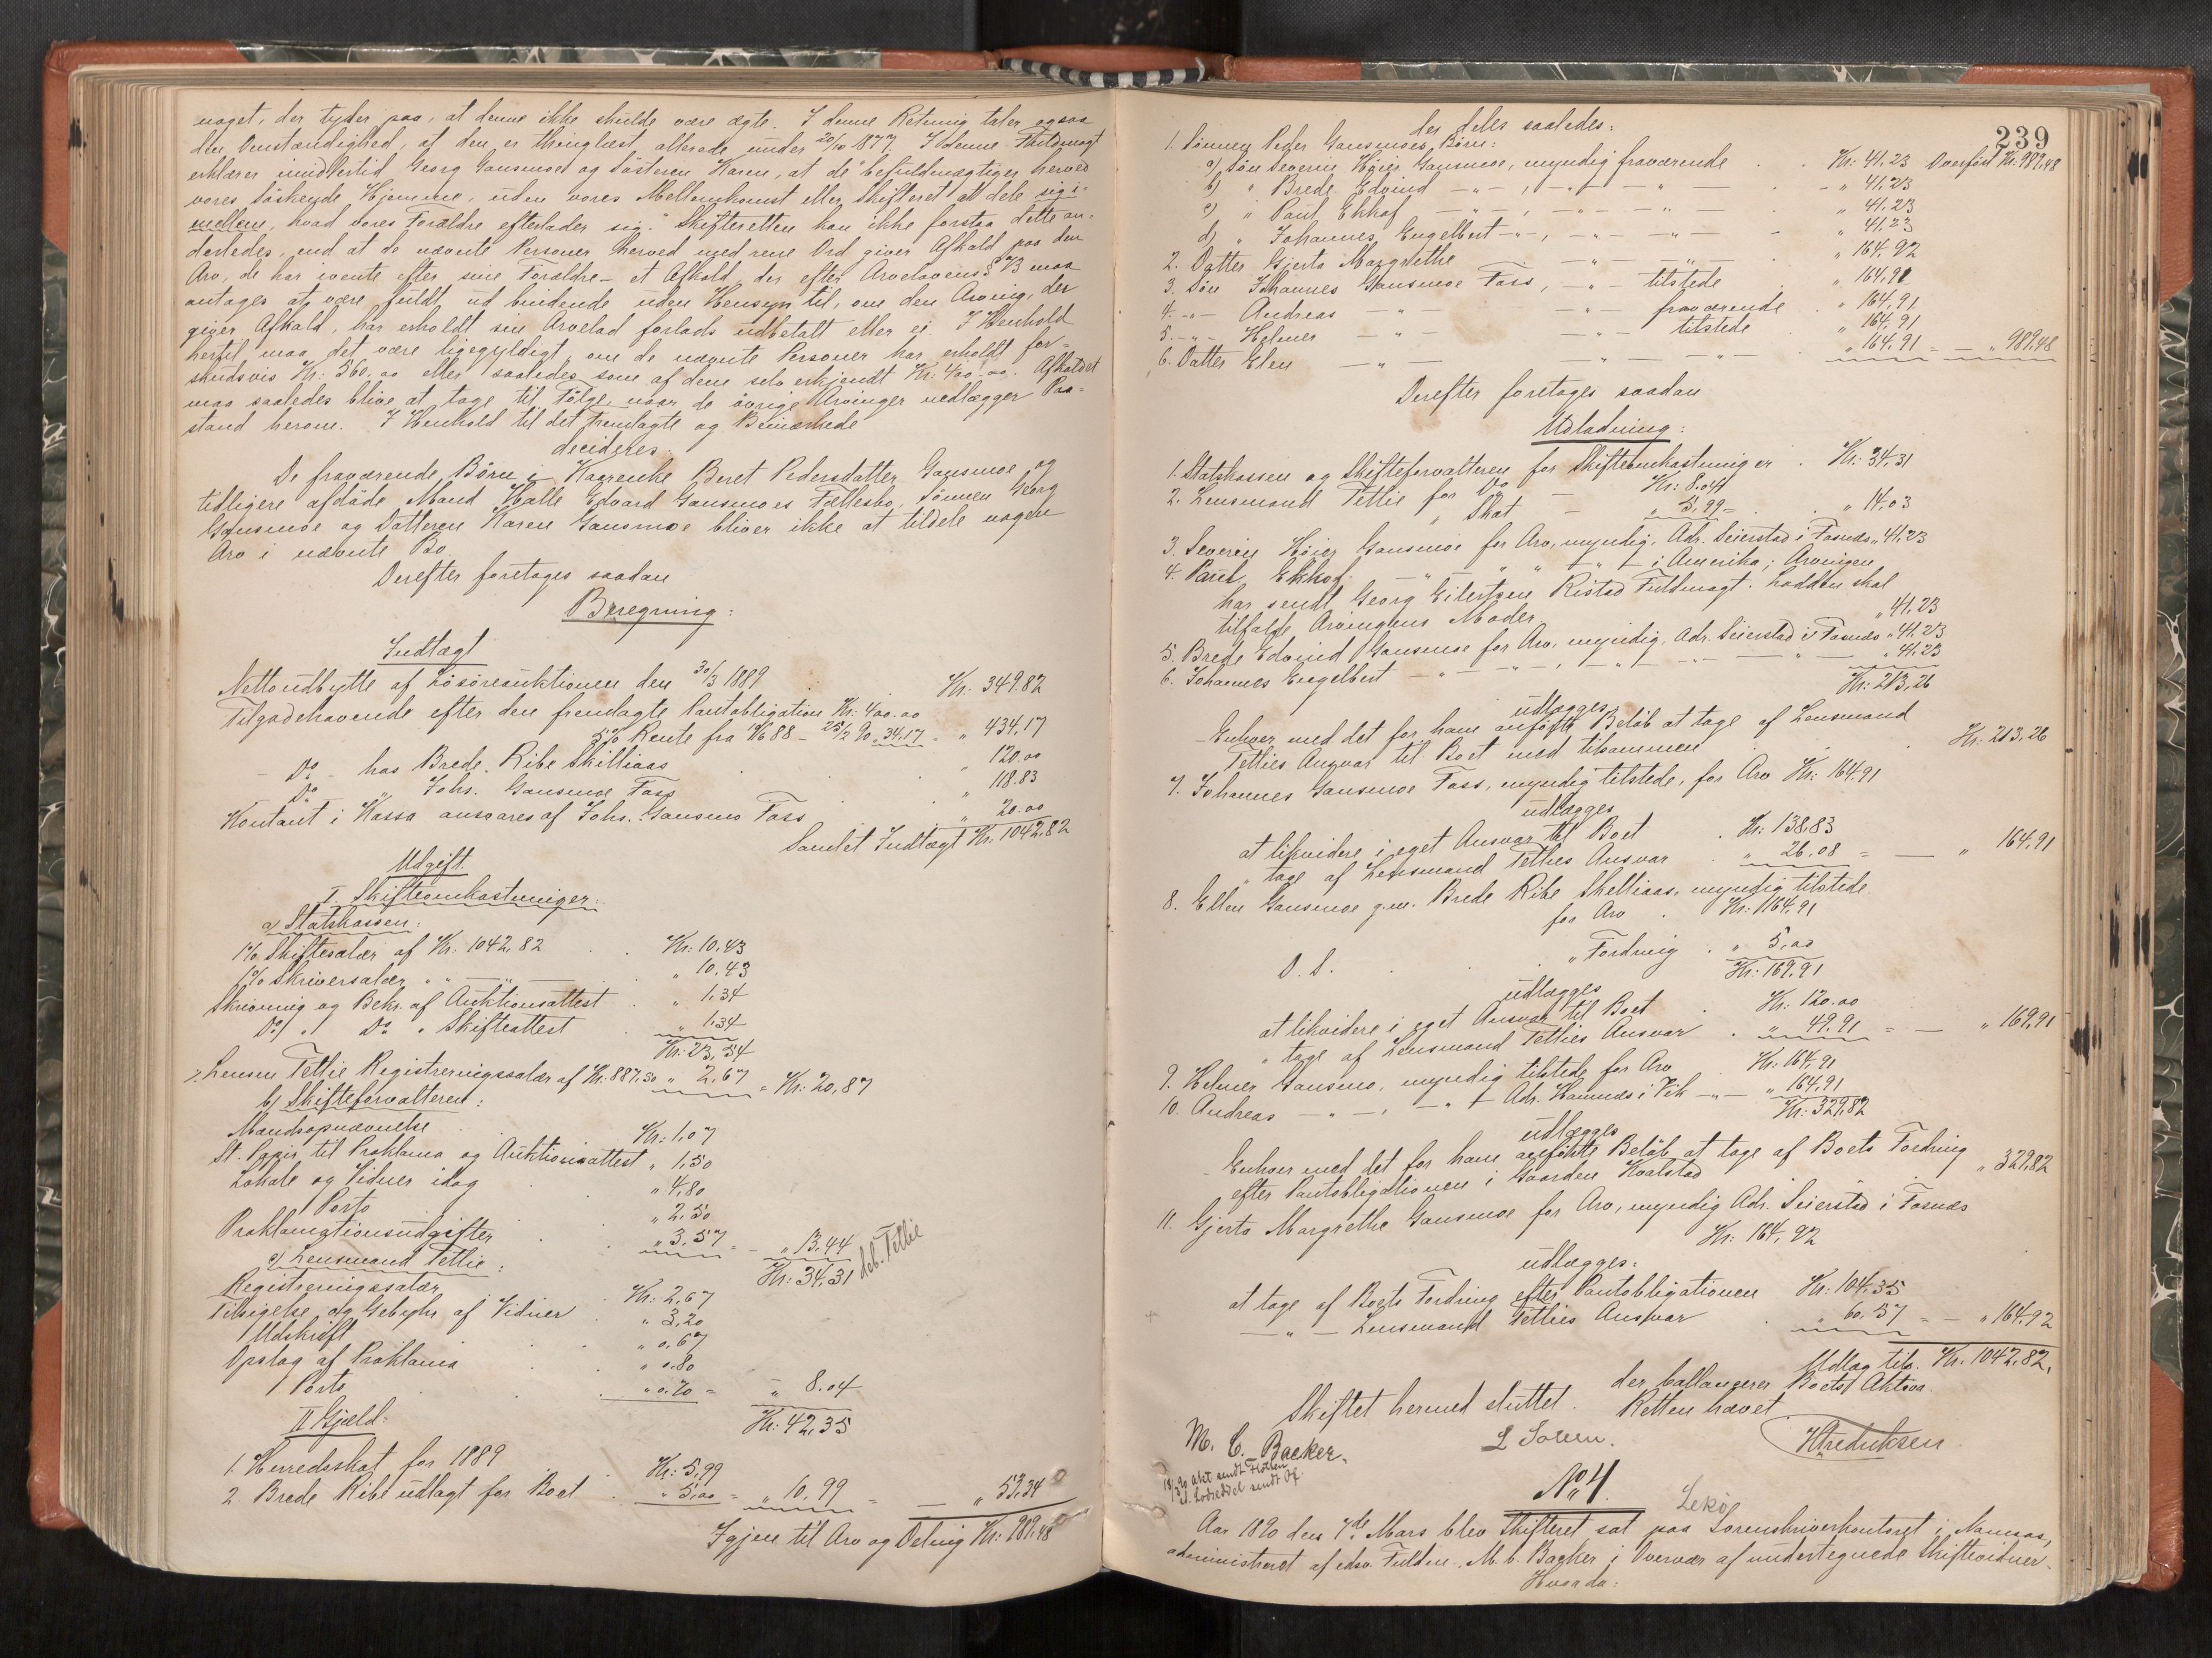 noget, der tyder paa, at denne ikke skulde være ægte. I denne Retning taler ogsaa
den Omstændighed, at den er thinglæst allerede under 20/10 1877. I denne Fuldmagt
erklærer imidlertid Georg Gansmoe og Søsteren Karen, at de "befuldmægtiger herved
vores Søskende Hjemme, uden vores Mellemkomst eller Skifteret at dele sig i-
mellem, hvad vores Forældre efterlader sig." Skifteretten kan ikke forstaa dette an-
derledes, end at de nævnte Personer herved med rene Ord giver Afkald paa den
Arv, de har ivente efter sine Forældre – et Afkald, der efter Arvelovens § 73 maa
antages at være fuldt ud bindende uden Hensyn til, om den Arving, der
giver Afkald, har erholdt sin Arvelod forlods udbetalt eller ei. I Henhold
hertil maa det være ligegyldigt, om de nævnte Personer har erholdt for-
skudsvis Kr: 560.00 eller saaledes som af dem selv erkjendt Kr: 400.00. Afkaldet
maa saaledes blive at tage til Følge, naar de øvrige Arvinger nedlægger Paa-
stand herom. I Henhold til det fremlagte og Bemærkede
decideres:
De fraværende Børn i Kaarenke Beret Pedersdatter Gansmoe og
tidligere afdøde Mand Halle Edvard Gansmoes Fællesbo, Sønnen Georg
Gansmoe og Datteren Karen Gansmoe bliver ikke at tildele nogen
Arv i nævnte Bo.
Derefter foretages saadan
Beregning:
Indtægt
Nettoudbytte af Løsøreauktionen den 30/3 1889 Kr. 349.82
Tilgodehavende efter den fremlagte Pantobligation Kr: 400.00
5% Rente fra 88 – 25/2 90 " 34.17 " 434.17
– Do – hos Brede Ribe Skilliaas " 120.00
Do " Johs. Gansmoe Foss " 118.83
Kontant i Kassa ansvares af Johs. Gansmo Foss " 20.00
Samlet Indtægt Kr. 1042.82
Udgift
I. Skifteomkostninger:
a) Statskassen:
1% Skiftesalær af Kr: 1042,82 Kr: 10.43
1% Skriversalær " " — " — " 10.43
Skrivning og Bekr. af Auktionsattest " 1.34
Do " Do " Skifteattest " 1.34
Kr: 23,54
÷ Lensm Tetlie Registreringssalær af Kr: 887,50 " 2.67 = Kr: 20,87
b) Skifteforvalteren:
Mandsopnævnelse Kr: 1,07
St. Papir til Proklama og Auktionsattest " 1,50
Lokale og Vidner idag " 4,80
Porto " 2.50
Proklamationsudgifter " 3.57 = – " 13,44
Kr: 34,31 deb. Tetlie
c) Lensmand Tetlie:
Registreringssalær Kr: 2,67
Tilsigelse og Gebyhr af Vidner " 3,20
Udskrift " 0.67
Opslag af Proklama " 0.80
Porto " 0.70 = " 8.04
Kr: 42,35
II Gjæld:
1. Herredsskat for 1889 Kr: 5,99
2. Brede Ribe udlagt for Boet " 5,00 = " 10,99 = — " 53,34
Igjen til Arv og Deling Kr: 989,48
239
der deles saaledes:
1. Sønnen Peder Gansmoes Børn:
a) Søn Severin Høier Gansmoe, myndig fraværende Kr: 41.23 Overført Kr. 989,48
b) " Brede Edvind — " — , — " — — " — " 41,23
c) " Paul Ekhof — " — , — " — — " — " 41.23
d) " Johannes Engelbert — " — , — " — — " — " 41.23
2. Datter Gjerta Margrethe — " — — " — " 164,92
3. Søn Johannes Gansmoe Foss, — " — tilstede " 164,91
4. – " – Andreas — " — — " — fraværende " 164,91
5. – " – Helmer — " — — " — tilstede " 164,91
6. Datter Elen — " — — " — — " — " 164.91 = — " 989,48
Derefter foretages saadan
Udlodning:
1. Statskassen og Skifteforvalteren for Skifteomkostninger Kr: 34,31
2. Lensmand Tetlie for Do — Kr: 8.04
" Skat — " 5,99 = " 14.03
3. Severin Høier Gansmoe for Arv, myndig, Adr. Seierstad i Fosnæs " 41,23
4. Paul Ekhof — " — " " — " — i Amerika; Arvingen
har sendt Georg Eilertsen Ristad Fuldmagt. Lodden skal
tilfalde Arvingens Moder " 41,23
5. Brede Edvind Gansmoe for Arv, myndig, Adr. Seierstad i Fosnæs " 41.23
6. Johannes Engelbert — " — — " — , — " — — " — " 41.23
Kr: 213,26
udlægges
Enhver med det for ham anførte Beløb at tage af Lensmand
Tetlies Ansvar til Boet med tilsammen Kr: 213,26
7. Johannes Gansmoe Foss, myndig tilstede, for Arv Kr: 164,91
udlægges
at likvidere i eget Ansvar til Boet Kr: 138,83
" tage af Lensmand Tetlies Ansvar " 26.08 = — " 164,91
8. Ellen Gansmoe g. m. Brede Ribe Skilliaas, myndig tilstede
for Arv Kr: 164,91
D. S. " Fordring " 5,00
Kr: 169,91
udlægges
at likvidere i eget Ansvar til Boet Kr: 120.00
" tage af Lensmand Tetlies Ansvar " 49.91 = — " 169,91
9. Helmer Gansmo, myndig tilstede for Arv Kr: 164,91
10. Andreas — " — , — " — Adr. Hamnæs i Vik — " — " 164,91
Kr: 329,82
udlægges
Enhver med det for ham anførte Beløb at tage af Boets Fordring
efter Pantobligationen i Gaarden Kvalstad " 329,82
11. Gjerta Margrethe Gansmoe for Arv, myndig Adr. Seierstad i Fosnæs
Kr: 164,92
udlægges:
at tage af Boets Fordring efter Pantobligationen Kr: 104,35
— " — Lensmand Tetlies Ansvar " 60,57 = — " 164,92
Udlag tils. Kr. 1042,82,
der ballancerer Boets Aktiva.
Skiftet hermed sluttet. Retten hævet
M. C. Backer. L Solem. HFredriksen
No 4.
Lekø
Aar 1890 den 7de Mars blev Skifteret sat paa Sorenskriverkontoret i Namsos,
administreret af edsv. Fuldm. M. C. Backer i Overvær af undertegnede Skiftevidner.
Hvorda: